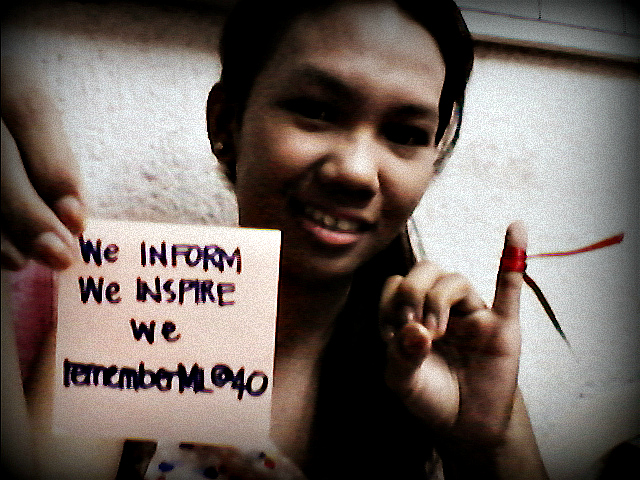 We INFORM
We INSPIRE
we
rememberML@40